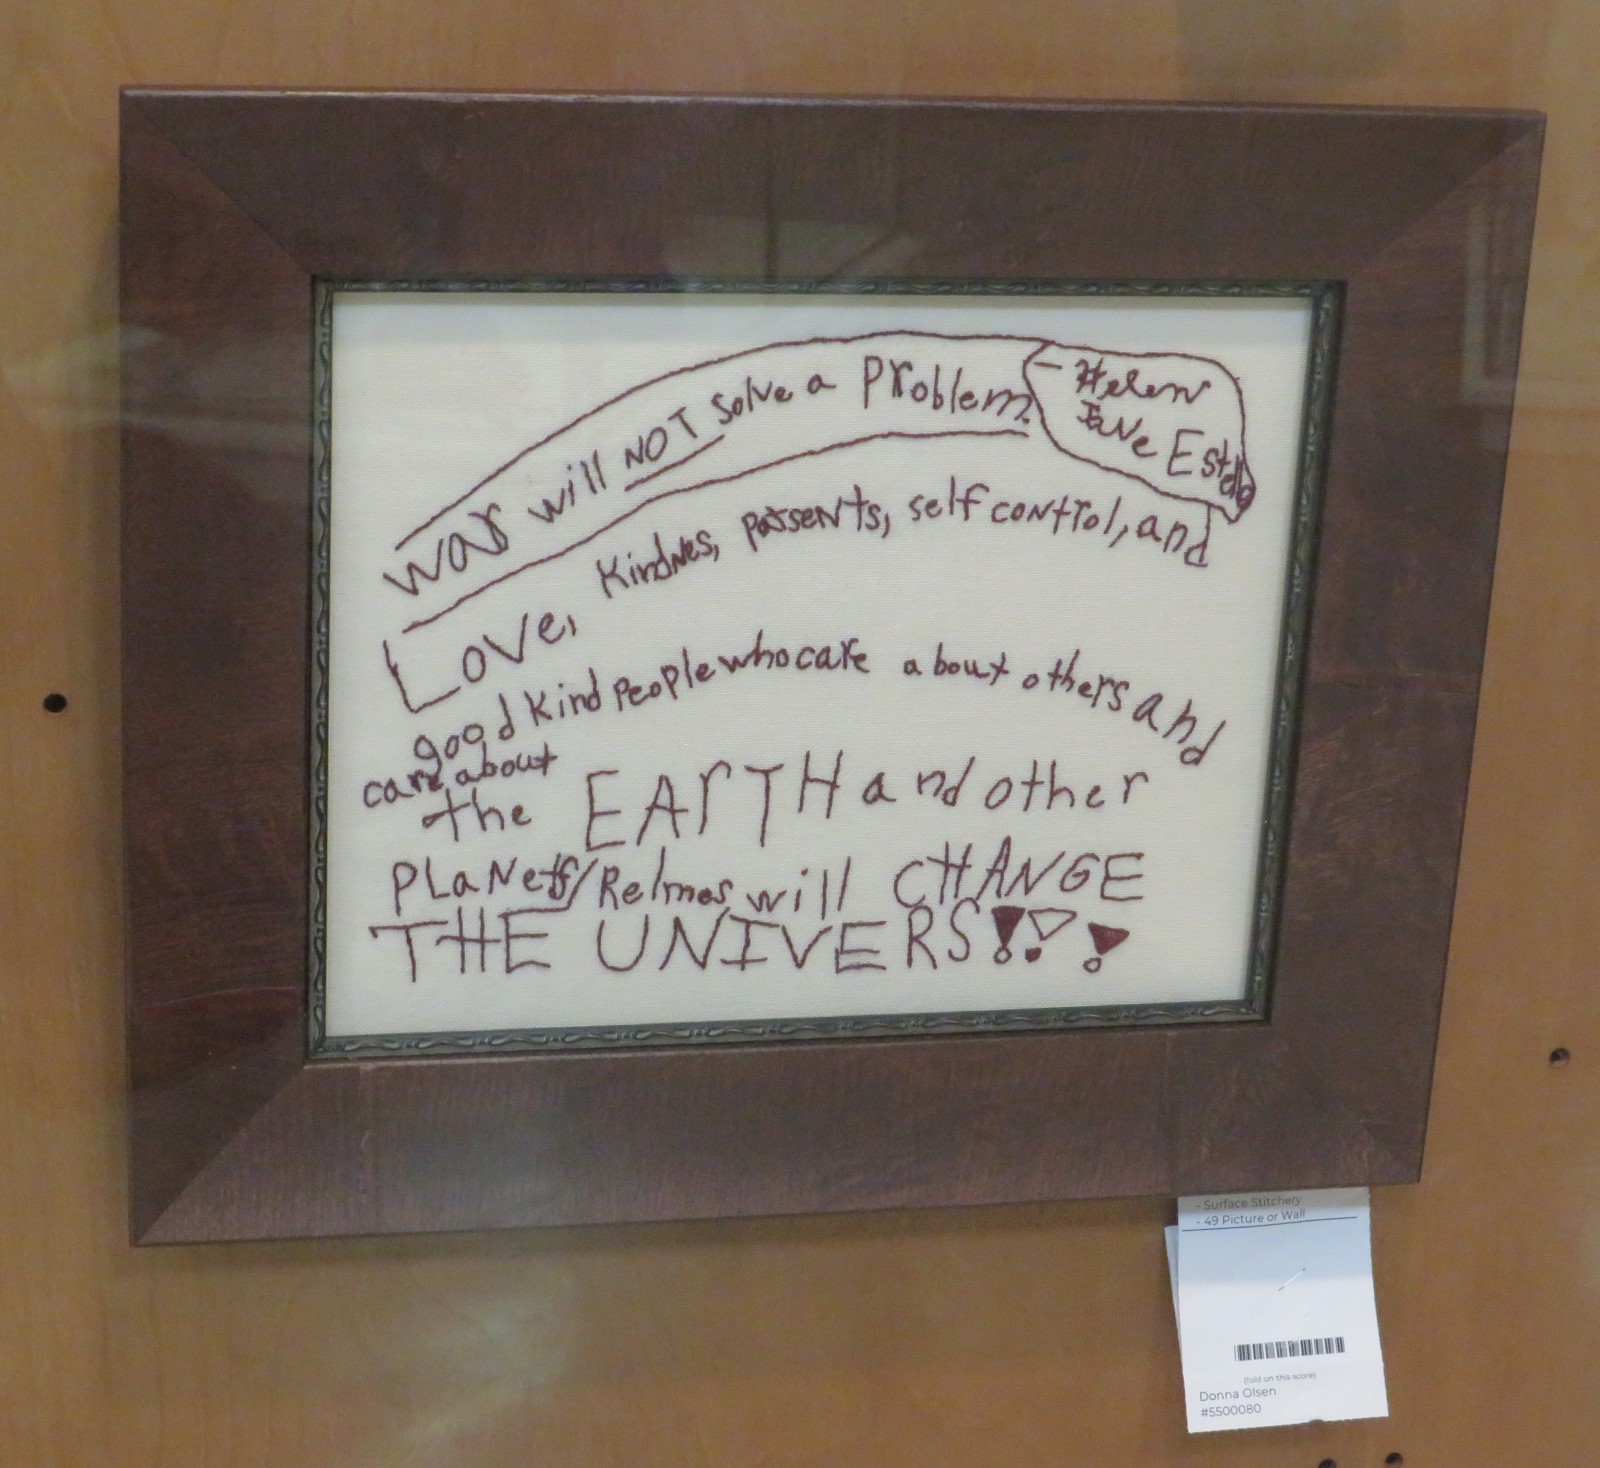 war will NOT solve a Problem.
- Helen
Jane Estele
Love, Kindnes, passents, self control, and
good Kind People who care about others and
care about
the EArTH and other
PLaNets/Relmes will CHANGE
THE UNIVERS!!!
- Surface Stitchery
- 49 Picture or Wall
(fold on this score)
Donna Olsen
#5500080